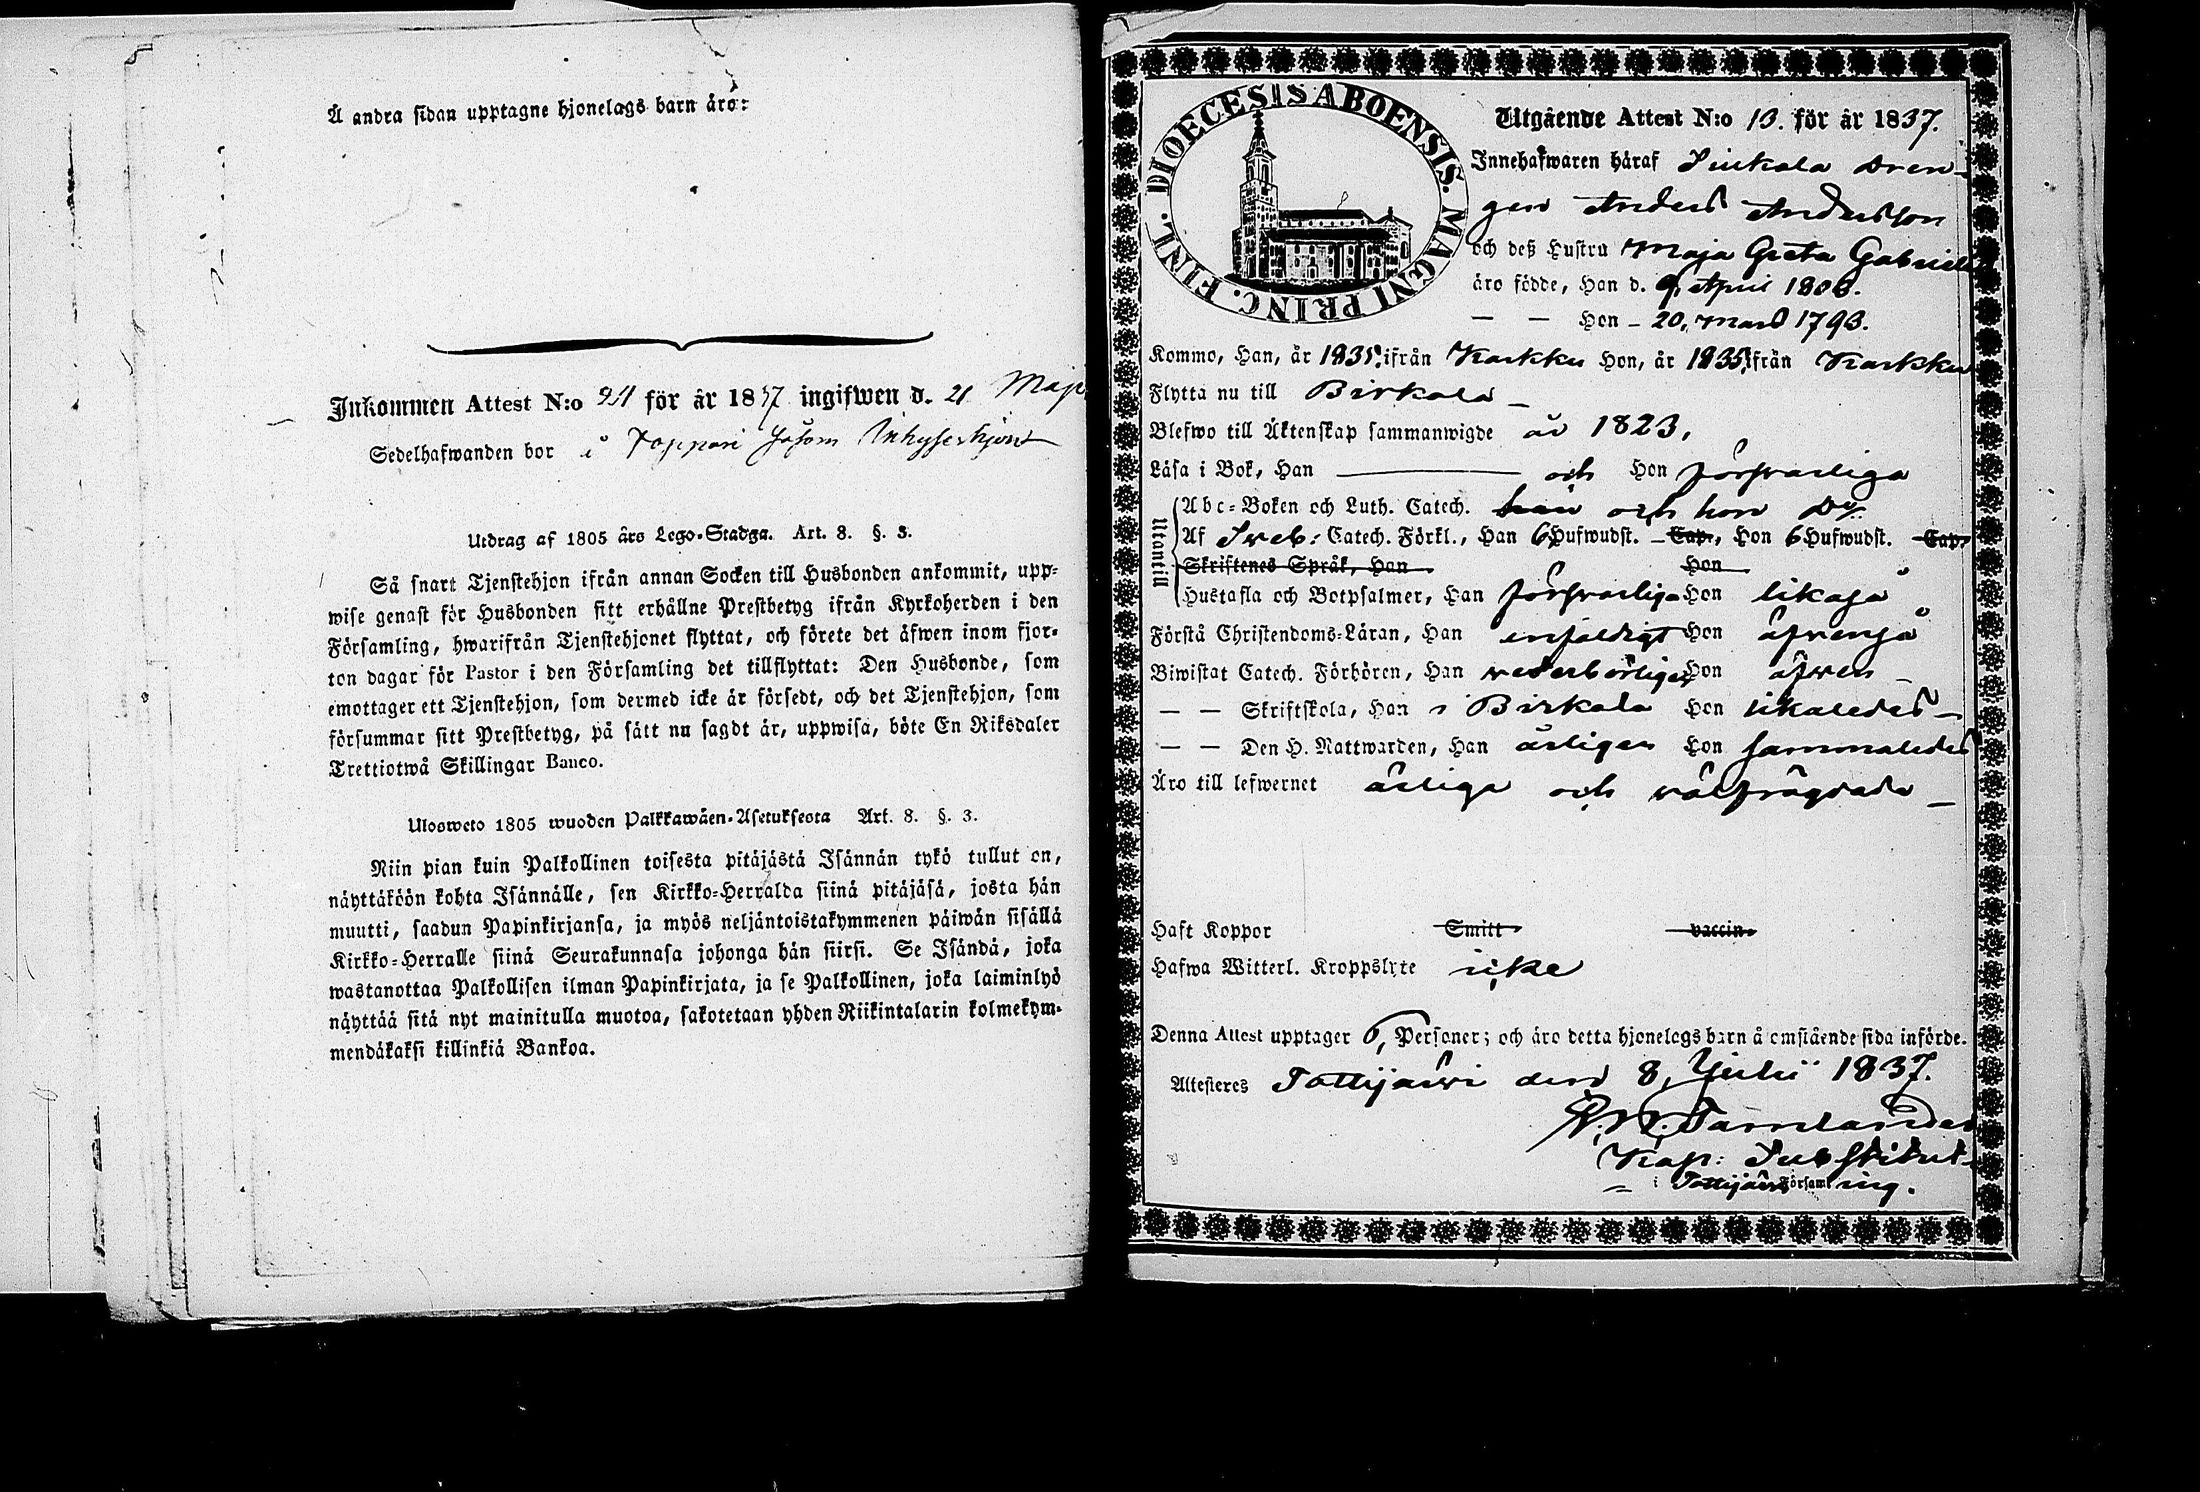 Å andra sidan upptagne hjonelags barn äro:
Inkommen Attest N:o för år 1837 ingifwen d. 21 Maji
Sedelhafwanden bor i såsom Inhyseshjon
Utdrag af 1805 års Lego-Stadga. Art. 8. §. 3.
Så snart Tjenstehjon ifrån annan Socken till Husbonden ankommit, upp-
wise genast för Husbonden sitt erhållne Prestbetyg ifrån Kyrkoherden i den
Församling, hwarifrån Tjenstehjonet flyttat, och förete det äfwen inom fjor-
ton dagar för Pastor i den Församling det tillflyttat: Den Husbonde, som
emottager ett Tjenstehjon, som dermed icke är försedt, och det Tjenstehjon, som
försummar sitt Prestbetyg, på sätt nu sagdt är, uppwisa, böte En Riksdaler
Trettiotwå Skillingar Banco.
Ulosweto 1805 wuoden Palkkawäen-Asetuksesta Art. 8. §. 3.
Niin pian kuin Palkollinen toisesta pitäjästä Isännän tykö tullut on,
näyttäköön kohta Isännälle, sen Kirkko-Herralda siinä pitäjäsä, josta hän
muutti, saadun Papinkirjansa, ja myös neljäntoistakymmenen päiwän sisällä
Kirkko-Herralle siinä Seurakunnasa johonga hän siirsi. Se Isändä, joka
wastanottaa Palkollisen ilman Papinkirjata, ja se Palkollinen, joka laiminlyö
näyttää sitä nyt mainitulla muotoa, sakotetaan yhden Riikintalarin kolmekym-
mendäkaksi killinkiä Bankoa.
DIOECESIS ABOENSIS. MAGNI PRINC. FINL.
Utgående Attest N:o 13. för år 1837.
Innehafwaren häraf dren-
gen Anders Andersson
och deß Hustru Maja Greta Gabriels
äro födde, Han d. 9, April 1806.
— — Hon — 20, Mars 1793.
Kommo, Han, år 1835, ifrån Karkku Hon, år 1835, ifrån Karkku
Flytta nu till Birkala —
Blefwo till Äktenskap sammanwigde år 1823,
Läsa i Bok, Han och Hon försvarliga
Utantill
Abc-Boken och Luth. Catech. han och hon Do
Af Sveb: Catech. Förkl., Han 6 Hufwudst. — Cap., Hon 6 Hufwudst. — Cap.
Skriftenes Språk, Han Hon
Hustafla och Botpsalmer, Han försvarliga Hon likaså
Förstå Christendoms-Läran, Han enfaldigt Hon äfvenså
Biwistat Catech. Förhören, Han vederbörligen Hon äfven —
— — Skriftskola, Han i Birkala Hon likaledes —
— — Den H. Nattwarden, Han årligen Hon sammaledes
Äro till lefwernet ärliga och välfrägdade —
Haft Koppor Smitt- vaccin-
Hafwa Witterl. Kroppslyte icke
Denna Attest upptager Personer; och äro detta hjonelags barn å omstående sida införde.
Attesteres Tottijärvi den 8, Julii 1837.
Kap: Substitut.
i Tottijärvi Församling.